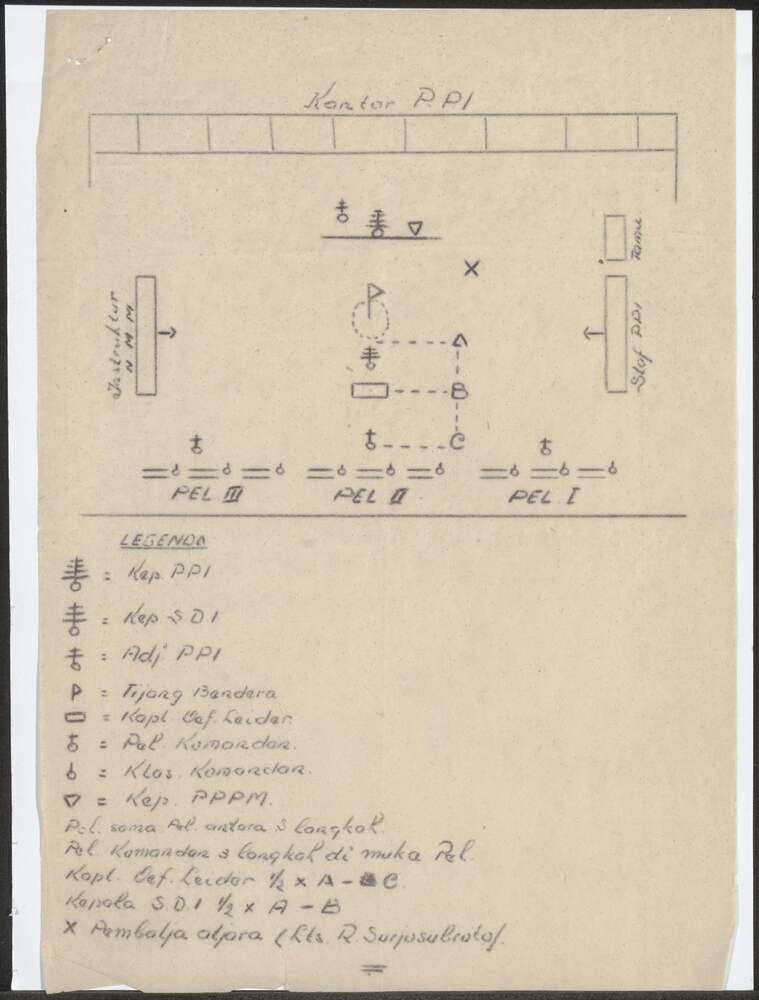 Kantor P.P.I
Tamu
Instruktur
N M M
Staf PPI
X
A
B
C
PEL III
PEL II
PEL I
LEGENDA
= Kep. PPI
= Kep S D I
= Adj. PPI
= Tijang Bendera
= Kapt. Oef. Leider.
= Pel. Komandan.
= Klas. Komandan.
= Kep. PPPM.
Pel. sama Pel. antara 3 langkah.
Pel. Komandan 3 langkah di muka Pel.
Kapt. Oef. Leider ½ x A - C
Kepala S.D.I ½ x A - B
X Pembatja atjara (Lts. R. Surjosubroto).